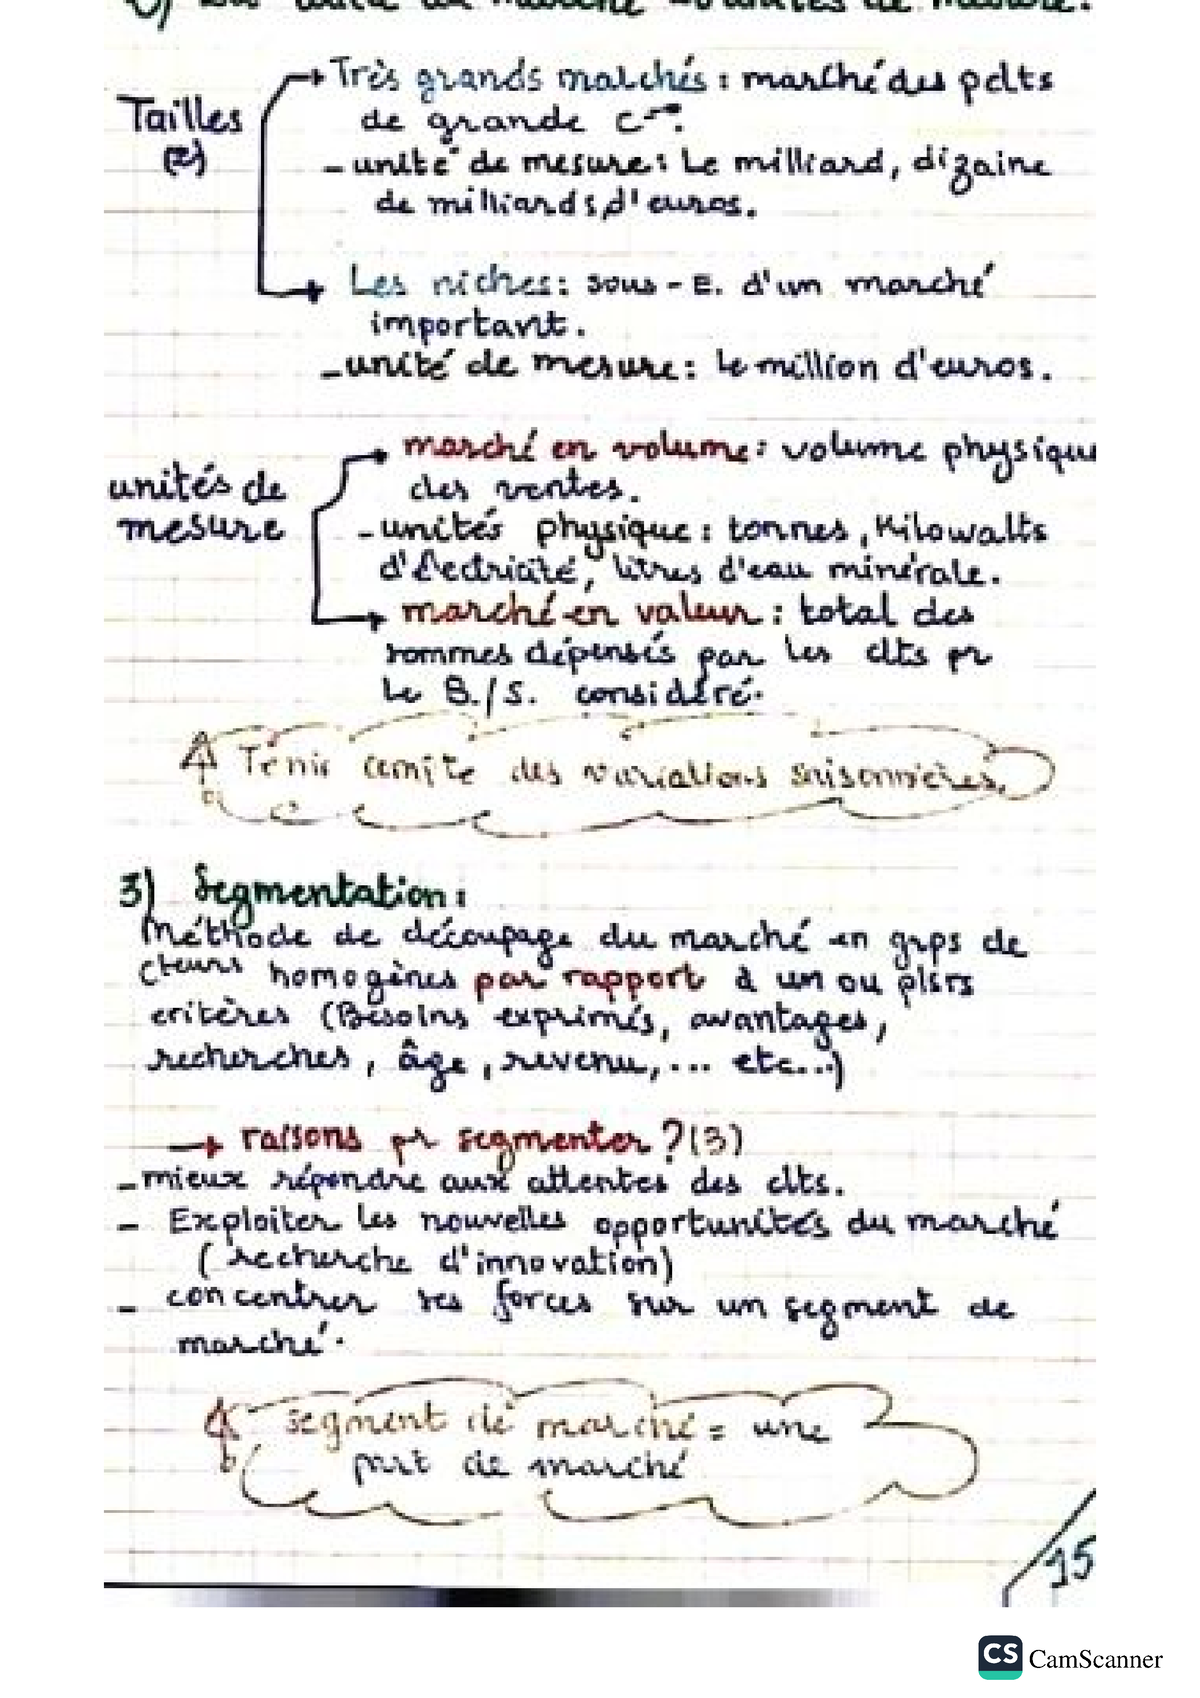 de mesure:
Très grands marchés : marché des pdts
Tailles
de grande c-°.
(2)
- unité de mesure : Le milliard, dizaine
de milliards d'euros.
Les niches : sous-E. d'un marché
important.
- unité de mesure : le million d'euros.
marché en volume : volume physique
unités de
des ventes.
mesure
- unités physique : tonnes, Kilowatts
d'électricité, litres d'eau minérale.
marché en valeur : total des
sommes dépensés par les clts pr
le B./S. considéré.
Tenir compte des variations saisonnières.
3) Segmentation :
Méthode de découpage du marché en grps de
cteurs homogènes par rapport à un ou plsrs
critères (Besoins exprimés, avantages,
recherches, âge, revenu, ... etc...)
→ raisons pr segmenter ? (3)
- mieux répondre aux attentes des clts.
- Exploiter les nouvelles opportunités du marché
(recherche d'innovation)
- concentrer ses forces sur un segment de
marché.
segment de marché = une
part de marché
15
CS CamScanner